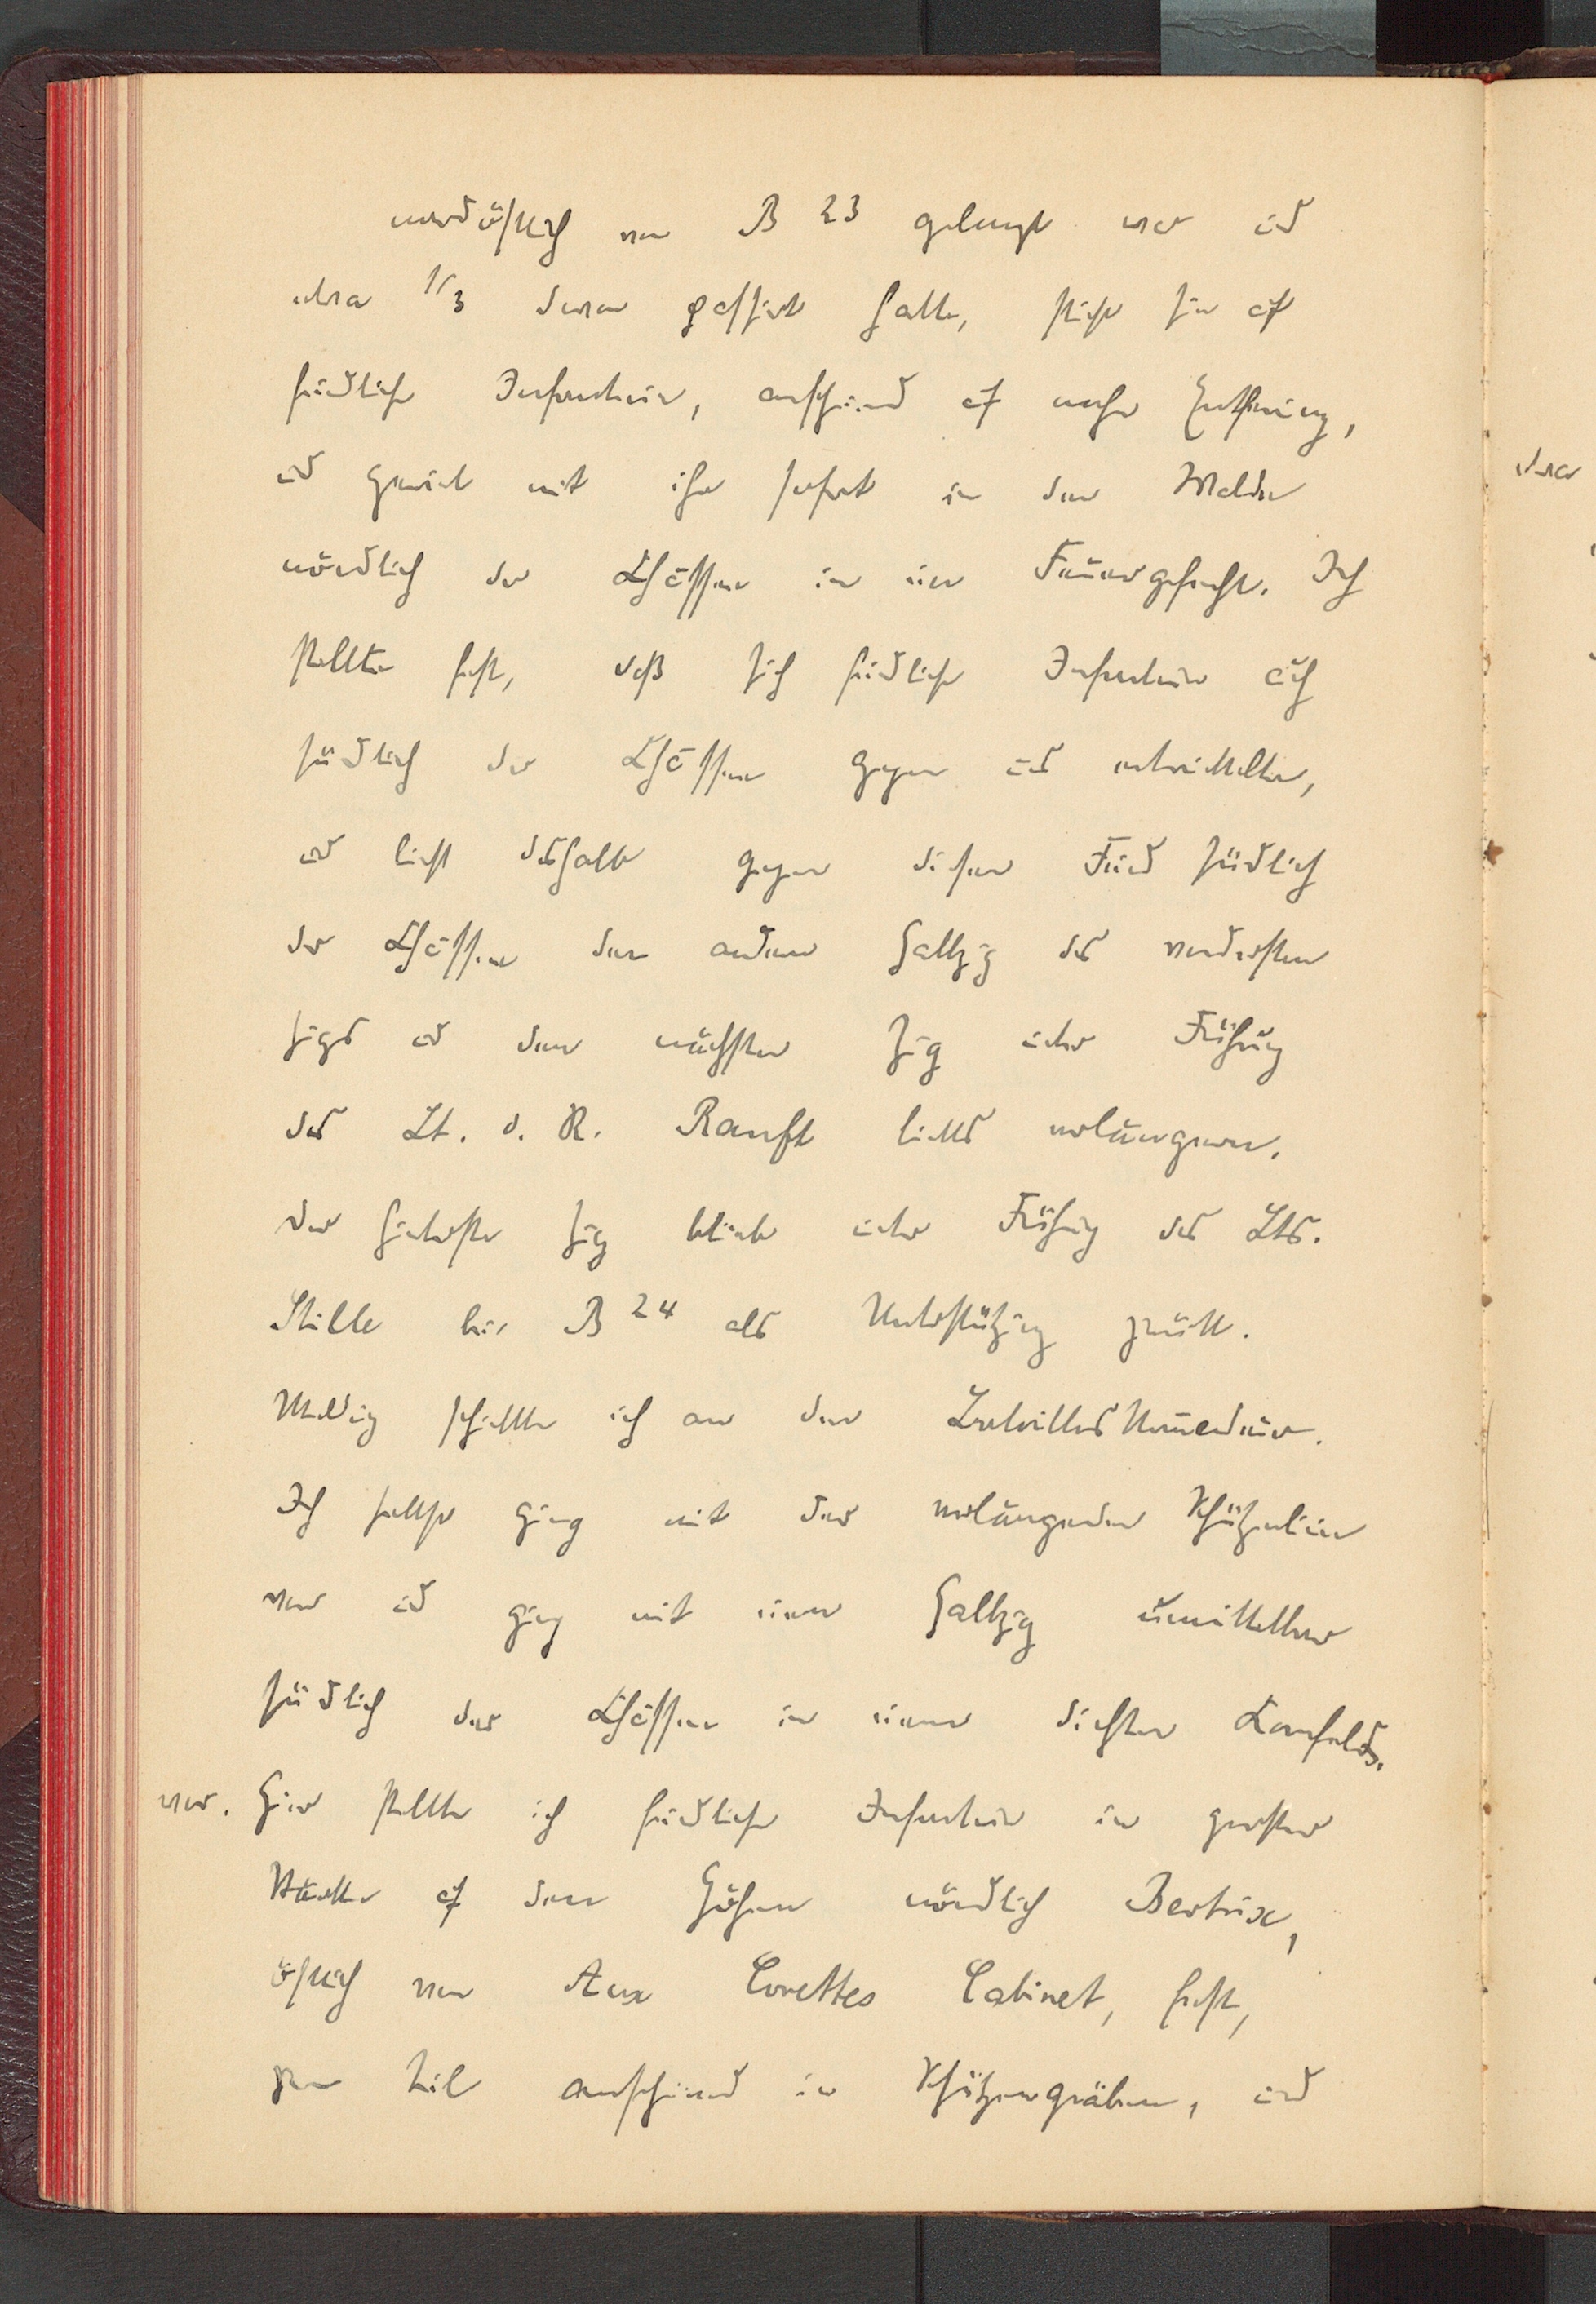 nordöstlich von B 23 gelangt war und
etwa 1/3 davon passiert hatte, stieß sie auf
feindliche Infanterie, anscheinend auf nahe Entfernung,
und geriet mit ihr sofort in dem Walde
nördlich der Chaussee in ein Feuergefecht. Ich
stellte fest, daß sich feindliche Infanterie auch
südlich der Chaussee gegen uns entwickelte,
und ließ deshalb gegen diesen Feind südlich
der Chaussee den andern Halbzug des vordersten
Zuges und den nächsten Zug unter Führung
des Lt. d. R. Ranft links verlängern.
Der hinterste Zug blieb unter Führung des Lts.
Stille bei B 24 als Unterstützung zurück.
Meldung schickte ich an den Bataillonskom̄andeur.
Ich selbst ging mit der verlängernden Schützenlinie
vor und ging mit einem Halbzug unmittelbar
südlich der Chaussee in einem dichten Kornfelde
vor. Hier stellte ich feindliche Infanterie in großer
Stärke auf den Höhen nördlich Bertrix,
östlich von Aux Corettes Cabinet, fest,
zum Teil anscheinend in Schützengräben, und